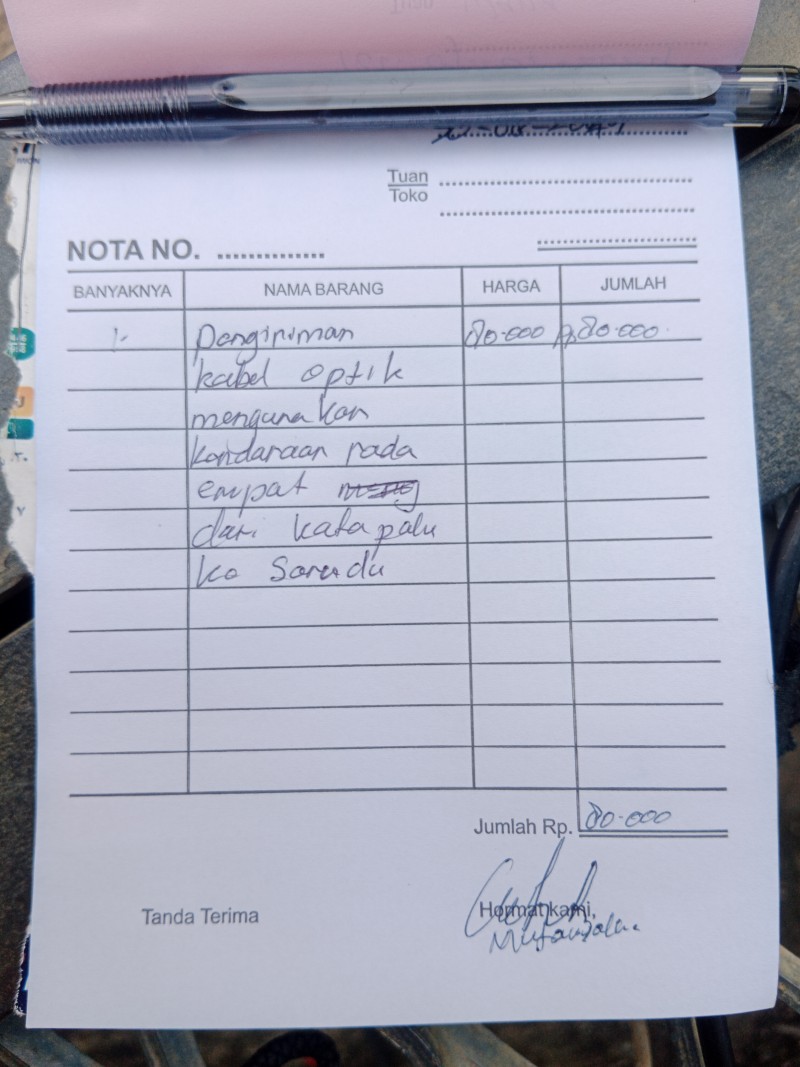 Tuan
Toko
NOTA NO. ..............
BANYAKNYA NAMA BARANG HARGA JUMLAH
1. Pengiriman 80.000 Rp 80.000.
kabel optik
mengunakan
kendaraan roda
empat
dari kota palu
ke Sarudu
Jumlah Rp. 80.000
Tanda Terima
Hormat kami,